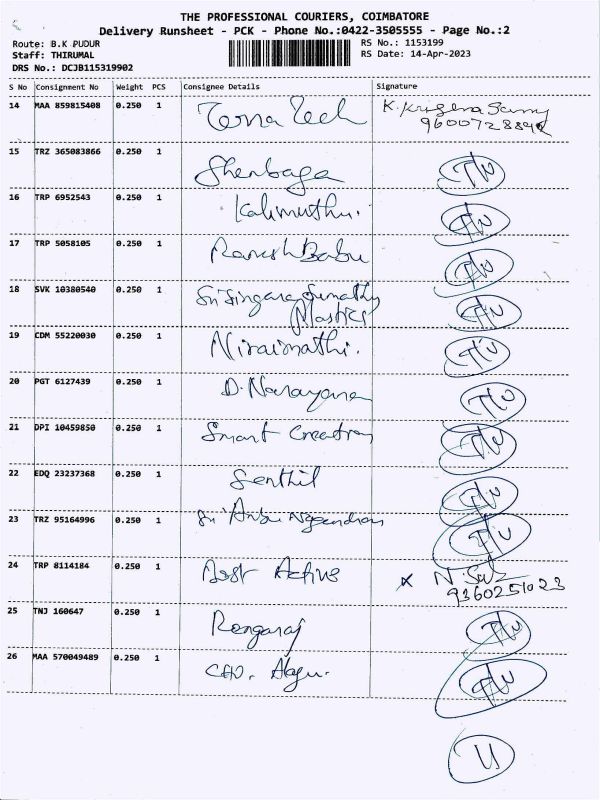 THE PROFESSIONAL COURIERS, COIMBATORE
Delivery Runsheet - PCK - Phone No.:0422-3505555 - Page No.:2
Route: B.K PUDUR
RS No.: 1153199
Staff: THIRUMAL
RS Date: 14-Apr-2023
DRS No.: DCJB115319902
S No Consignment No Weight PCS Consignee Details Signature
14 MAA 859815408 0.250 1 Tech K. Krishna Samy
15 TRZ 365083866 0.250 1 Shenbaga T/U
16 TRP 6952543 0.250 1 Kalimuthu. T/U
17 TRP 5058105 0.250 1 Ramesh Babu T/U
18 SVK 10380540 0.250 1 Sri Singara Sumathy T/U
Plastics
19 CDM 55220030 0.250 1 Niraimathi. T/U
20 PGT 6127439 0.250 1 D. Narayana T/U
21 DPI 10459850 0.250 1 Smart Creation T/U
22 EDQ 23237368 0.250 1 Senthil T/U
23 TRZ 95164996 0.250 1 Sri Anbu Nagendran T/U
24 TRP 8114184 0.250 1 Best Active x N.
9360251023
25 TNJ 160647 0.250 1 Rangaraj T/U
26 MAA 570049489 0.250 1 T/U
U